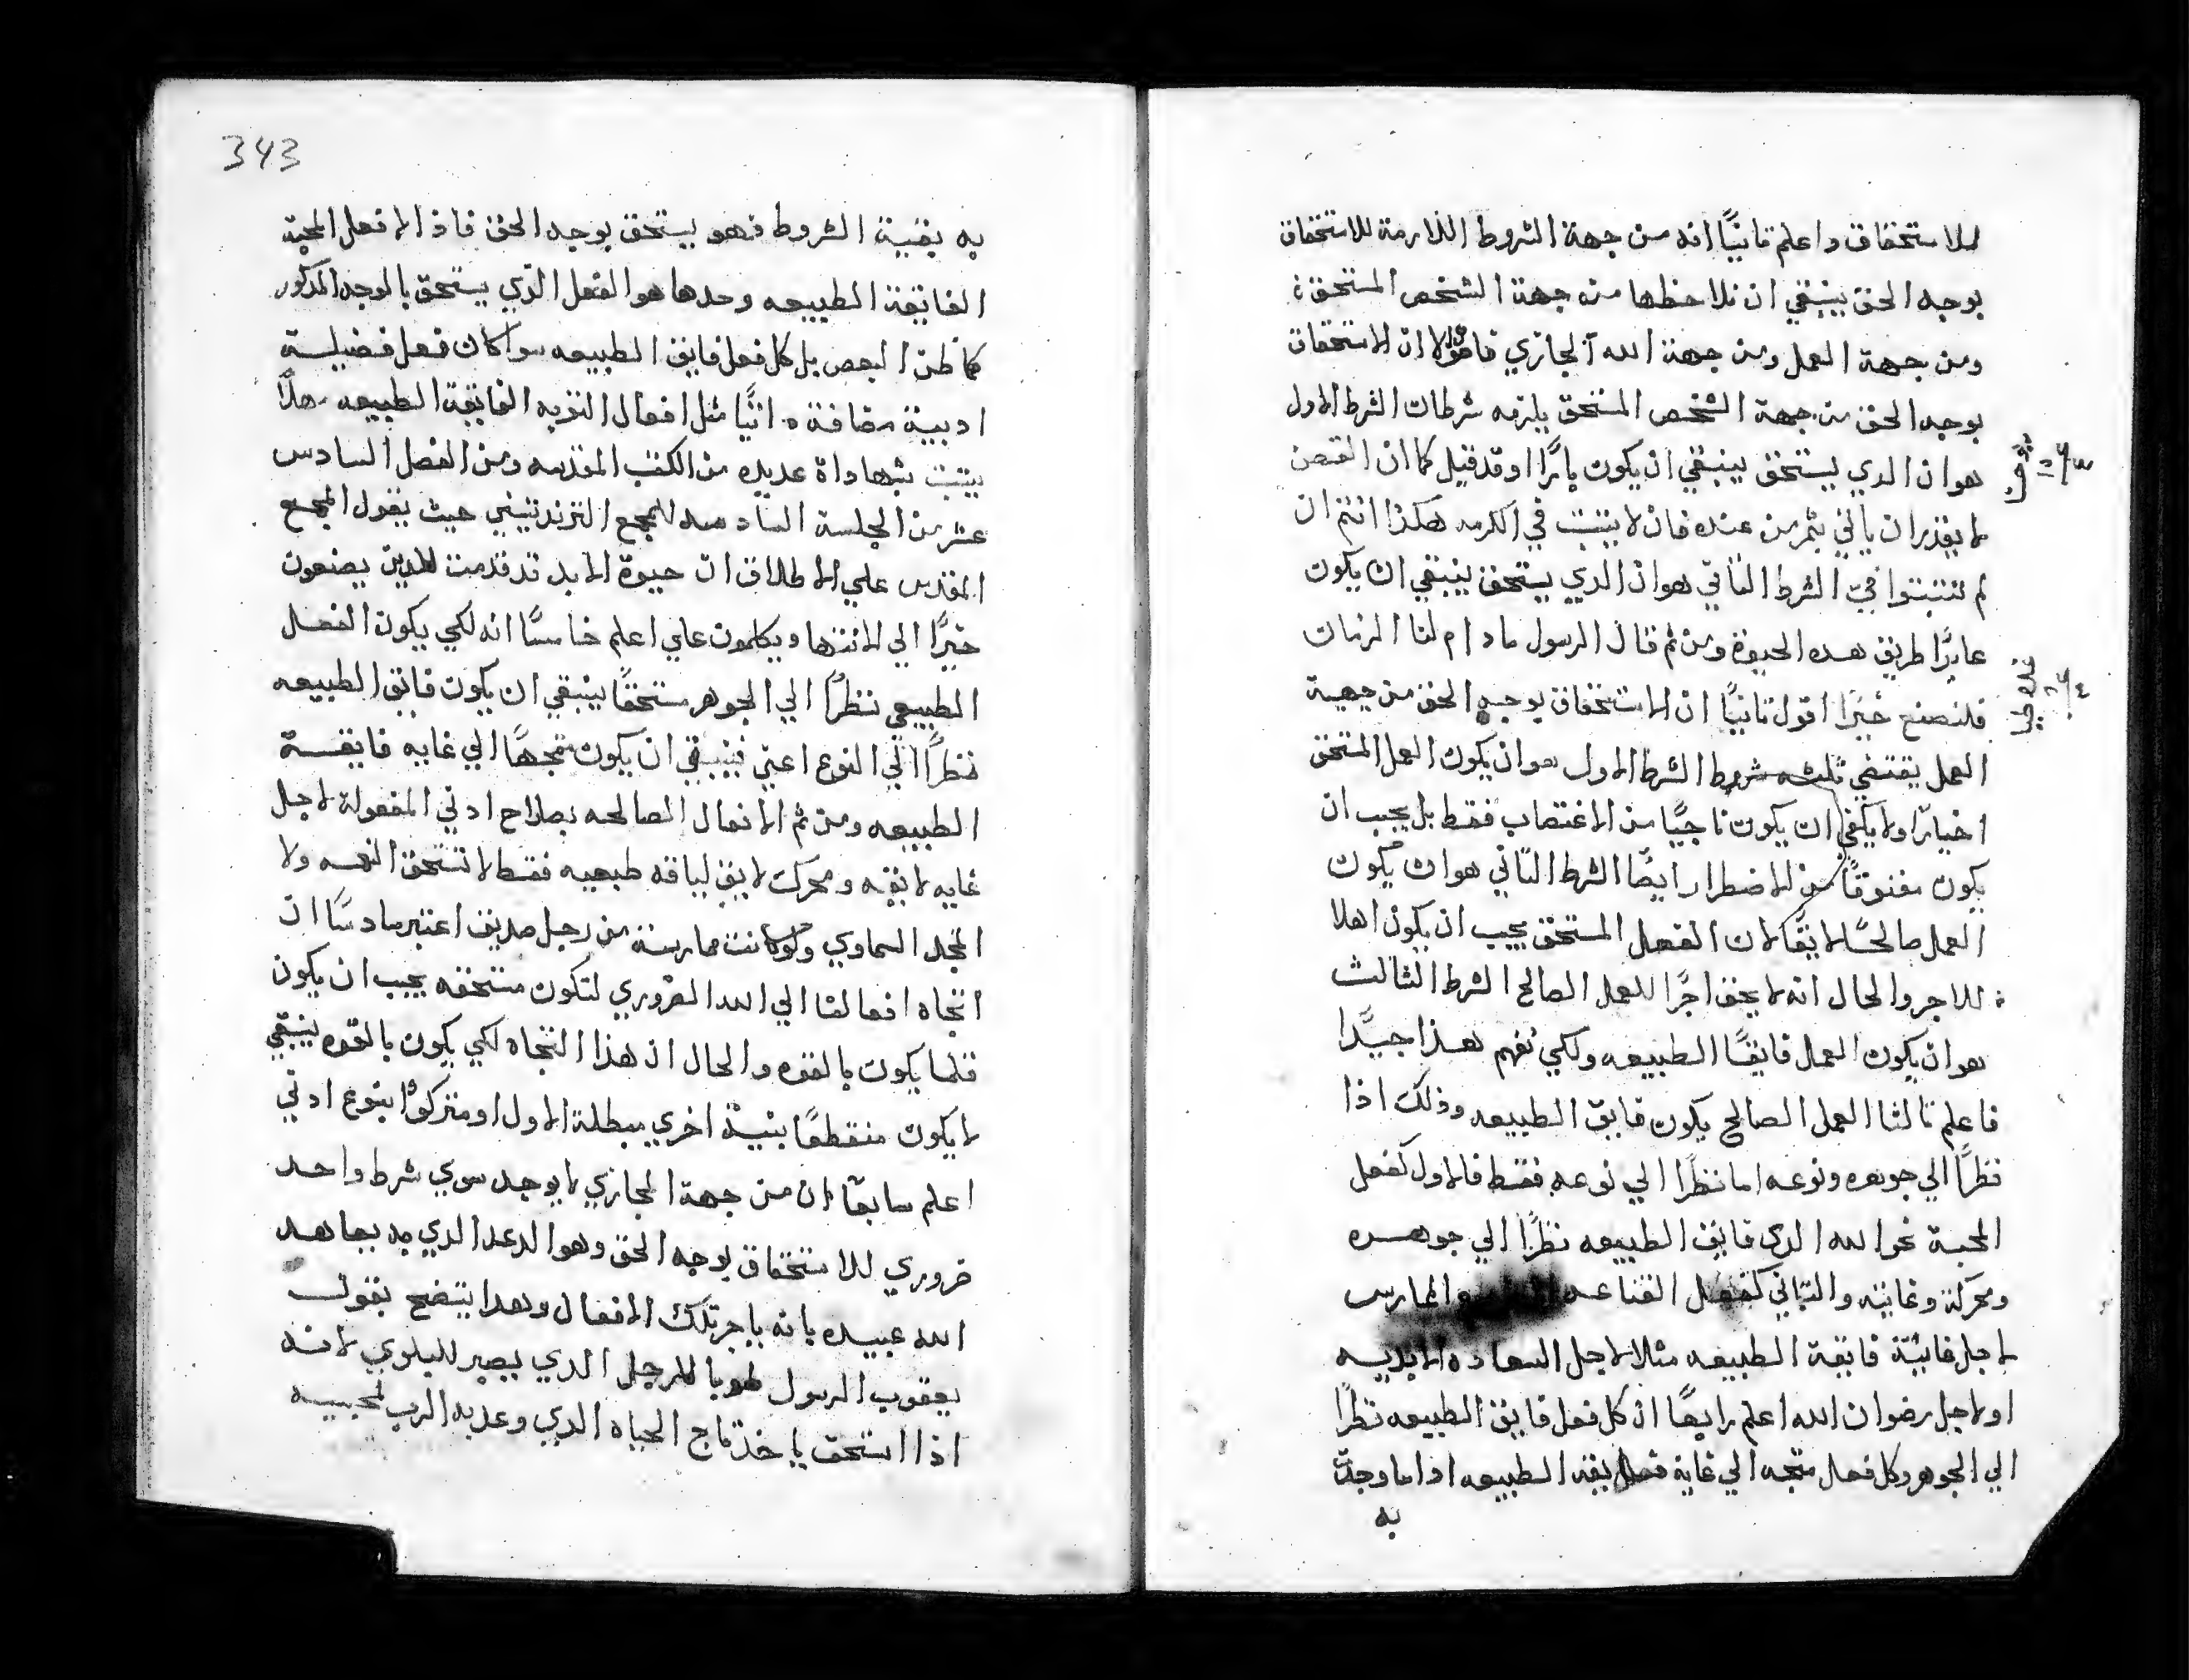 للاستحقاق واعلم ثانيًا انه من جهة الشروط اللازمة للاستحقاق
بوجه الحق ينبغي ان نلاحظها من جهة الشخص المستحق
ومن جهة العمل ومن جهة الله المجازي فاقول اولا ان الاستحقاق
بوجه الحق من جهة الشخص المستحق يلزمه شرطان الشرط الاول
هو ان الدي يستحق ينبغي ان يكون بارًا وقد قيل كما ان الغصن
لا يقدر ان ياتي بثمر من عنده فان لا يثبت في الكرمه هكذا انتم ان
لم تثبتوا فيّ الشرط الثاني هو ان الدي يستحق ينبغي ان يكون
عابرًا طريق هده الحيوة ومن ثم قال الرسول ما دام لنا الزمان
فلنصنع خيرًا اقول ثانيًا ان الاستحقاق بوجه الحق من جهة
العمل يقتضي ثلثه شروط الشرط الاول هو ان يكون العمل المستحق
اختياريًا ولا يكفي ان يكون ناجيًا من الاغتصاب فقط بل يجب ان
يكون معتوقًا من الاضطرار ايضًا الشرط الثاني هو ان يكون
العمل صالحًا لايقًا لان الفعل المستحق يجب ان يكون اهلا
للاجر والحال انه لا يحق اجرًا للعمل الصالح الشرط الثالث
هو ان يكون العمل فايقًا الطبيعه ولكي نفهم هذا جيدًا
فاعلم ثالثا العمل الصالح يكون فايق الطبيعه وذلك اذا
نظرًا الي جوهره ونوعه اما نظرًا الي نوعه فقط فالاول كفعل
المحبة نحو الله الدي فايق الطبيعه نظرًا الي جوهره
ومحركه وغايته والثاني كفعل القناعه والممارس
لاجل غايتة فايقة الطبيعه مثلا لاجل السعاده الابديه
او لاجل رضوان الله اعلم رابعًا ان كل فعل فايق الطبيعه نظرًا
الي الجوهر وكل فعل متجه الي غاية فايقه الطبيعه ادا ما وجدت
به
343
به بقية الشروط فهو يستحق بوجه الحق فاذ الا فعل المحبة
الفايقة الطبيعه وحدها هو الفعل الذي يستحق بالوجه المذكور
كما ظن البعض بل كل فعل فايق الطبيعه سوا كان فعل فضيلة
ادبية مضافة مثل افعال التوبه الفايقة الطبيعه هذا
يثبت بشهاداة عديده من الكتب المقدسه ومن الفصل السادس
عشر من الجلسة السادسه للمجمع التريدنتيني حيث يقول المجمع
المقدس علي الاطلاق ان حيوة الابد قد قدمت للدين يصنعون
خيرًا الي الانتها ويكلمون علي اعلم خامسًا انه لكي يكون الفعل
الطبيعي نظرًا الي الجوهر مستحقًا ينبغي ان يكون فايق الطبيعه
نظرًا الي النوع اعني فينبغي ان يكون متجهًا الي غايه فايقة
الطبيعه ومن ثم الافعال الصالحه بصلاح ادني المفعولة لاجل
غايه لايقه ومحرك لايق لياقه طبعيه فقط لا تستحق النعمه ولا
المجد السماوي ولو كانت ممارسة من رجل صديق اعتبر سادسًا ان
اتجاه افعالنا الي الله الضروري لتكون مستحقه يجب ان يكون
قلما يكون بالقوه والحال ان هذا التجاه لكي يكون بالقوه ينبغي
لا يكون منقطعًا بنية اخري مبطلة الاول او متروكًا بنوع ادني
اعلم سابعًا ان من جهة المجازي لا يوجد سوي شرط واحد
ضروري للاستحقاق بوجه الحق وهو الوعد الدي به يعاهد
الله عبيده بانه ياجر تلك الافعال وهدا يتضح بقول
يعقوب الرسول طوبا للرجل الدي يصير للبلوي لانه
اذا استحق ياخذ تاج الحياه الدي وعد به الرب لمحبيه